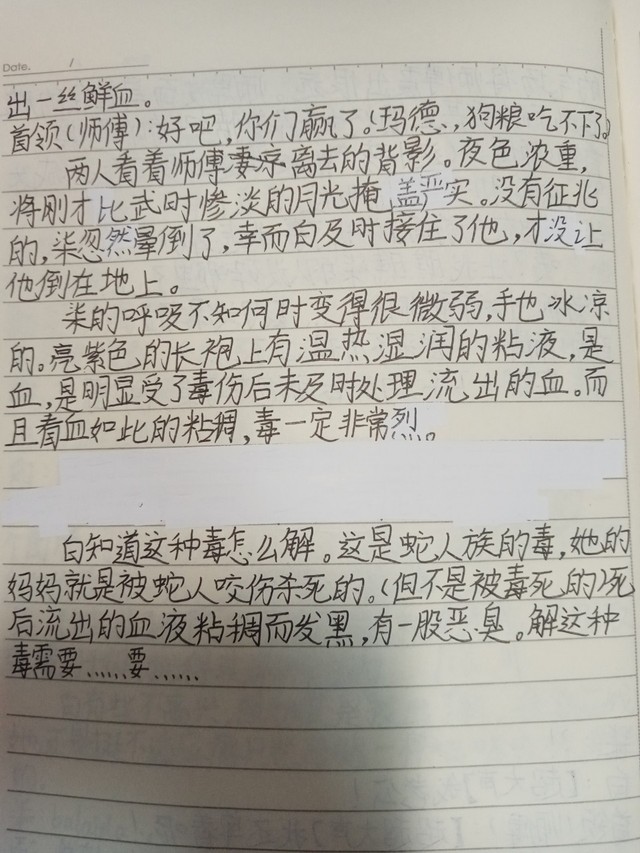 Date.     /
出一丝鲜血。
首领(师傅):好吧,你们赢了。(玛德,,狗粮吃不下了。
两人看着师傅凄凉离去的背影。夜色浓重,
将刚才比武时惨淡的月光掩盖严实。没有征兆
的,柒忽然晕倒了,幸而白及时接住了他,才没让
他倒在地上。
柒的呼吸不知何时变得很微弱,手也冰凉
的。亮紫色的长袍上有温热湿润的粘液,是
血,是明显受了毒伤后未及时处理流出的血。而
且看血如此的粘稠,毒一定非常烈。
白知道这种毒怎么解。这是蛇人族的毒,她的
妈妈就是被蛇人咬伤杀死的。(但不是被毒死的)死
后流出的血液粘稠而发黑,有一股恶臭。解这种
毒需要……要……